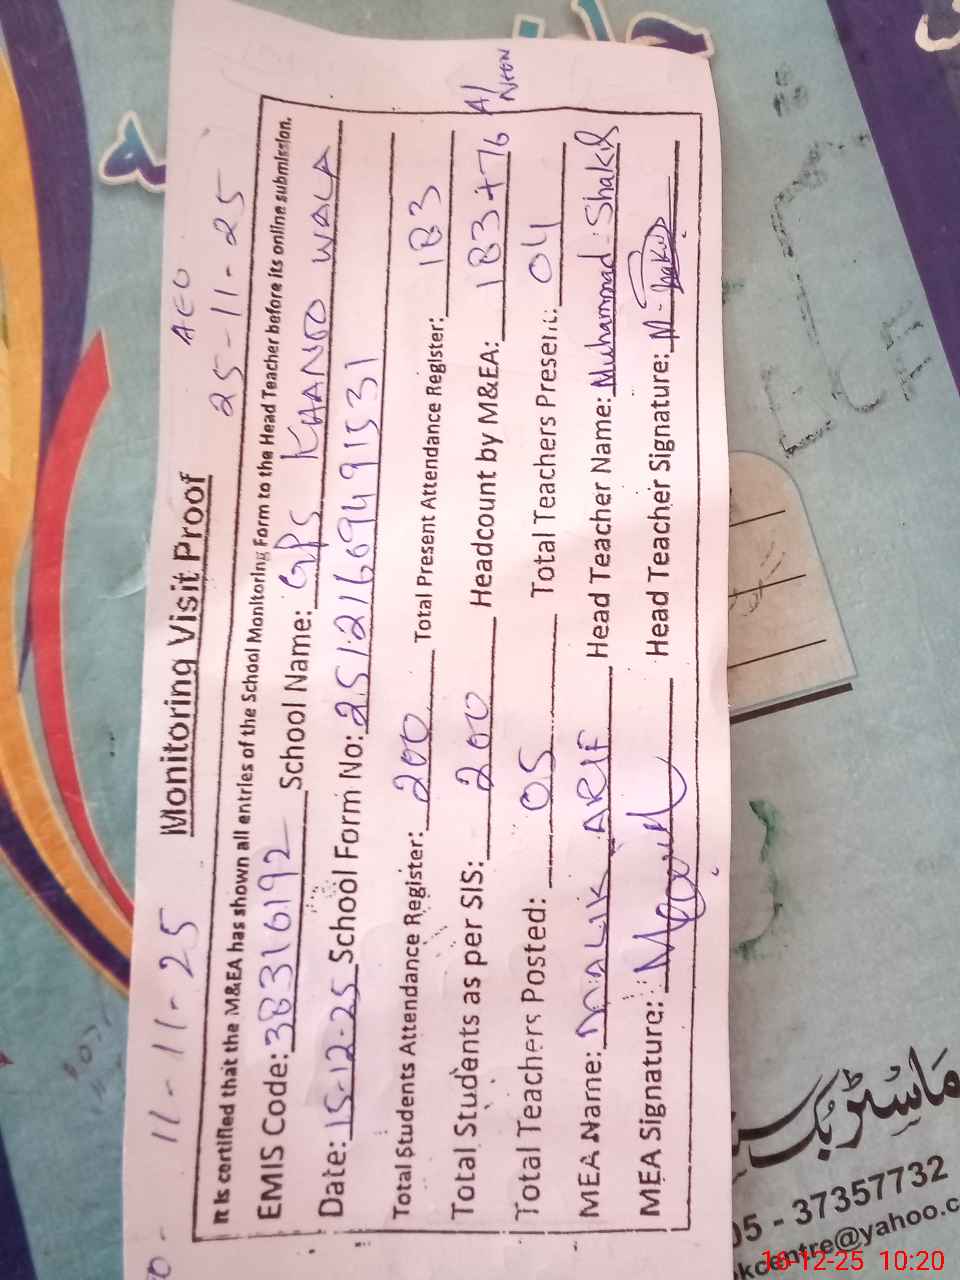 AEO
11-11-25 Monitoring Visit Proof 25-11-25
It is certified that the M&EA has shown all entries of the School Monitoring Form to the Head Teacher before its online submission.
EMIS Code: 38316192 School Name: GPS KHANDO WALA
Date: 15-12-25 School Form No: 251216949 1531
Total Students Attendance Register: 200 Total Present Attendance Register: 183
Total Students as per SIS: 200 Headcount by M&EA: 183+76
Total Teachers Posted: 05 Total Teachers Present: 04
MEA Name: MALIK ARIF Head Teacher Name: Muhammad Shakil
MEA Signature: Head Teacher Signature:
ماسٹر بک
05 - 37357732
kcentre@yahoo.c
16-12-25 10:20